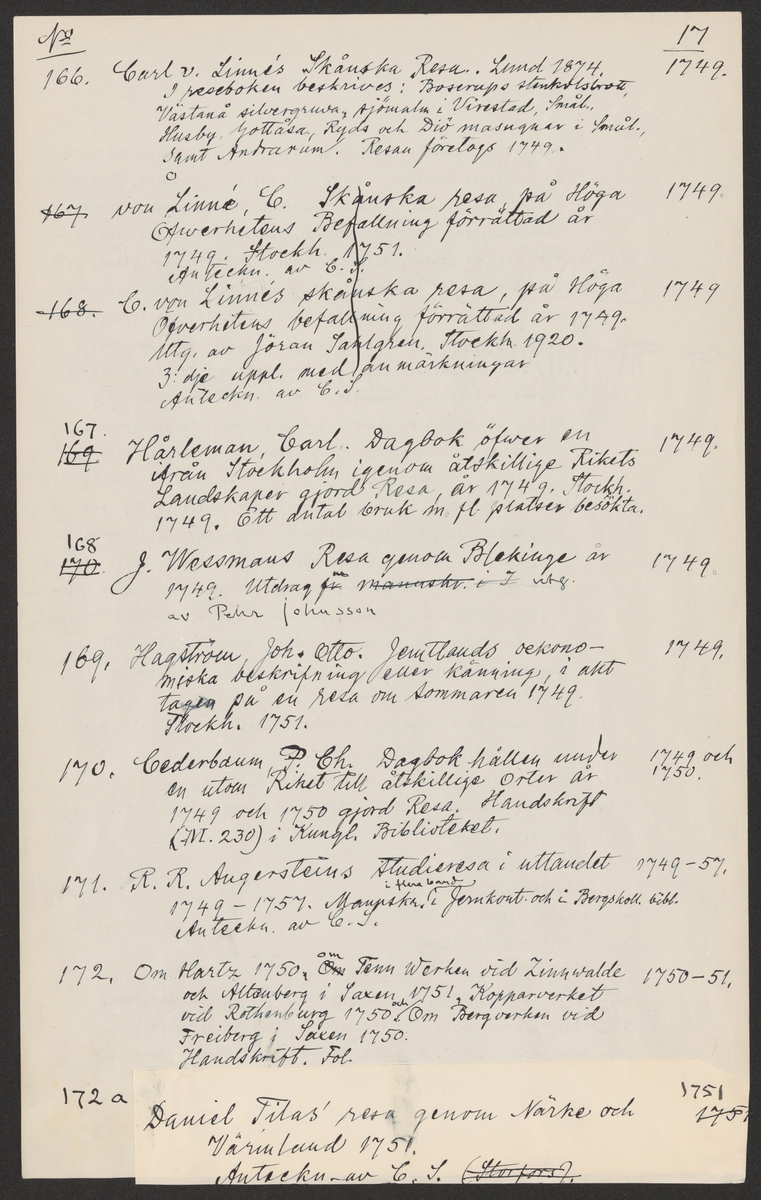 No 17
166. Carl v. Linnés Skånska Resa. Lund 1874. 1749.
I reseboken beskrives: Boserups stenkolsbrott,
Västanå silvergruva, sjömalm i Virestad, Smål.,
Husby, Gottåsa, Ryds och Diö masugnar i Smål.,
samt Andrarum. Resan företogs 1749.
167 von Linné, C. Skånska resa, på Höga 1749.
Öfwerhetens Befallning förrättad år
1749. Stockh. 1751.
Anteckn. av C. S.
168. C. von Linnés skånska resa, på Höga 1749
Öfverhetens befallning förrättad år 1749.
Utg. av Jöran Sahlgren, Stockh. 1920.
3:dje uppl. med anmärkningar
Anteckn. av C. S.
167.
169 Hårleman, Carl. Dagbok öfwer en 1749.
ifrån Stockholm igenom åtskillige Rikets
Landskaper gjord Resa, år 1749. Stockh.
1749. Ett antal bruk m. fl. platser besökta.
168
170. J. Wessmans Resa genom Blekinge år 1749.
1749. Utdrag manuskr. i utg.
av Pehr Johnsson
169. Hagström, Joh. Otto. Jemtlands oekono- 1749.
miska beskrifning eller känning, i akt
tagen på en resa om sommaren 1749.
Stockh. 1751.
170. Cederbaum, P. Ch. Dagbok hållen under 1749 och
en utom Riket till åtskillige Orter år 1750.
1749 och 1750 gjord Resa. Handskrift
(M. 230) i Kungl. Biblioteket.
171. R. R. Angersteins Studieresa i utlandet 1749-57.
i flera band
1749-1757. Manuskr. i Jernkont. och i Bergskoll. bibl.
Anteckn. av C. S.
172. Om Hartz 1750, om Om Tenn Werken vid Zinnwalde 1750-51.
och Altenberg i Saxen 1751, Kopparverket
vid Rothenburg 1750 och Om Bergverken vid
Freiberg i Saxen 1750.
Handskrift. Fol.
172 a 1751
Daniel Tilas' resa genom Närke och 1751
Värmland 1751.
Anteckn. av C. S. (Storfors).